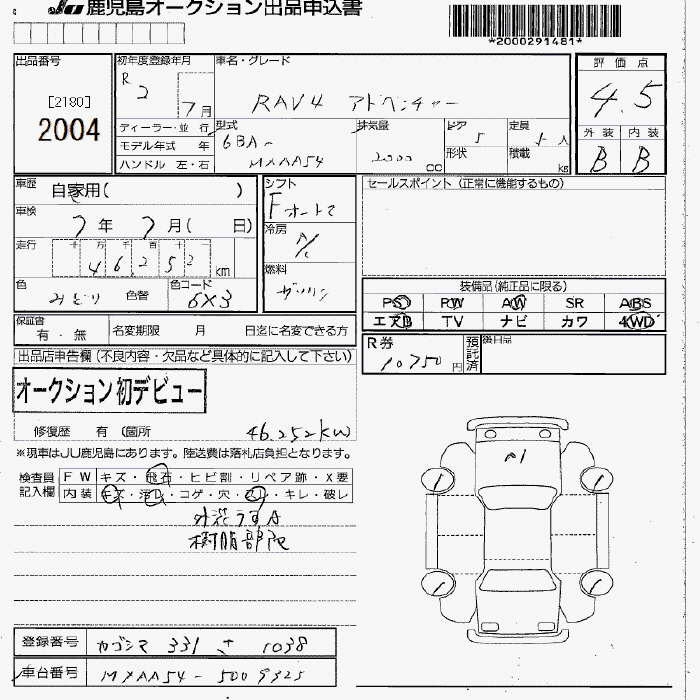 JU 鹿児島オークション出品申込書
*2000291481*
出品番号
[2180]
2004
初年度登録年月
R 2 7月
車名・グレード
RAV4 アドベンチャー
評価点
4.5
外装 内装
B B
ディーラー・並行
モデル年式 年
ハンドル 左・右
型式
6BA-
MXAA54
排気量
2000 cc
ドア 5
形状
定員 5 人
積載 kg
車歴 自家用( )
車検
7年 7月( 日)
走行
十 万 千 百 十 一
46252 km
色 みどり 色替
色コード 6X3
シフト
F オートマ
冷房
A/C
燃料
ガソリン
セールスポイント (正常に機能するもの)
装備品(純正品に限る)
PS PW AW SR ABS
エアB TV ナビ カワ 4WD
保証書
有・無
名変期限 月 日迄に名変できる方
R券
10750円
預託済
後日品
出品店申告欄(不良内容・欠品など具体的に記入して下さい)
オークション初デビュー
修復歴 有 (箇所
46.252km
※現車はJU鹿児島にあります。陸送費は落札店負担となります。
検査員記入欄
FW キズ・飛石・ヒビ割・リペア跡・X要
内装 キズ・汚レ・コゲ・穴・スレ・キレ・破レ
外装うすA
樹脂部限
A1
登録番号 カゴシマ 331 さ 1038
車台番号 MXAA54-5009325